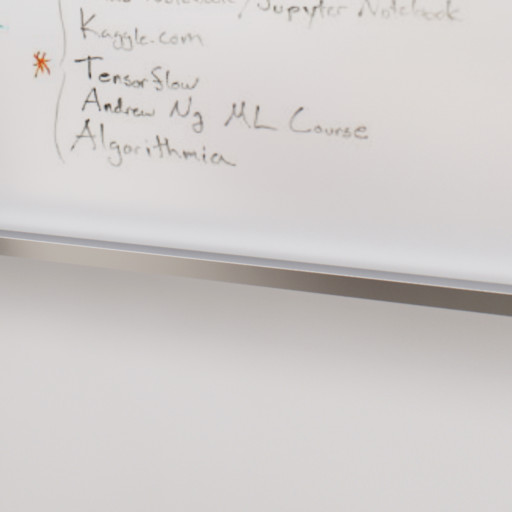 Jupyter Notebook
Kaggle.com
* Tensorflow
Andrew Ng ML Course
Algorithmia